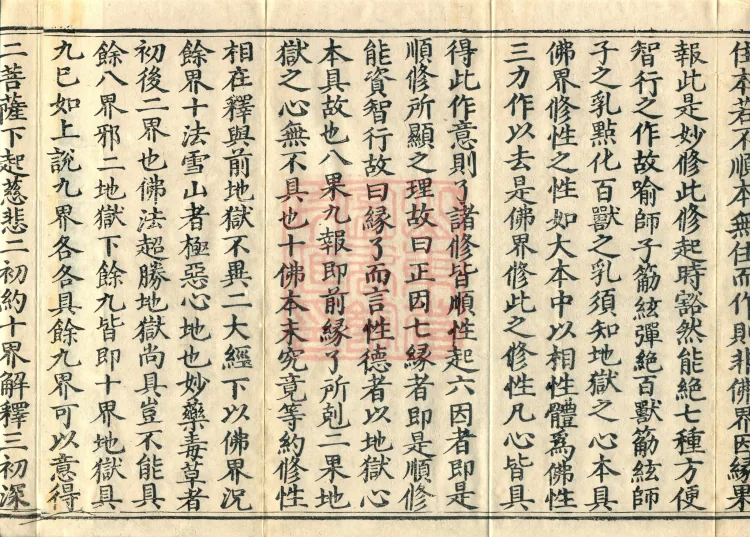 住本若不順本無住而作則非佛界因緣果
報此是妙修此修起時豁然能絕七種方便
智行之作故喻師子筋絃彈絕百獸筋絃師
子之乳點化百獸之乳須知地獄之心本具
佛界修性之性如大本中以相性體為佛性
三力作以去是佛界修此之修性凡心皆具
得此作意則了諸修皆順性起六因者即是
順修所顯之理故曰正因七緣者即是順修
能資智行故曰緣了而言性德者以地獄心
本具故也八果九報即前緣了所剋二果地
獄之心無不具也十佛本末究竟等約修性
相在釋與前地獄不異二大經下以佛界況
餘界十法雪山者極惡心地也妙藥毒草者
初後二界也佛法超勝地獄尚具豈不能具
餘八界邪二地獄下餘九皆即十界地獄具
九已如上說九界各各具餘九界可以意得
二菩薩下起慈悲二初約十界解釋三初深